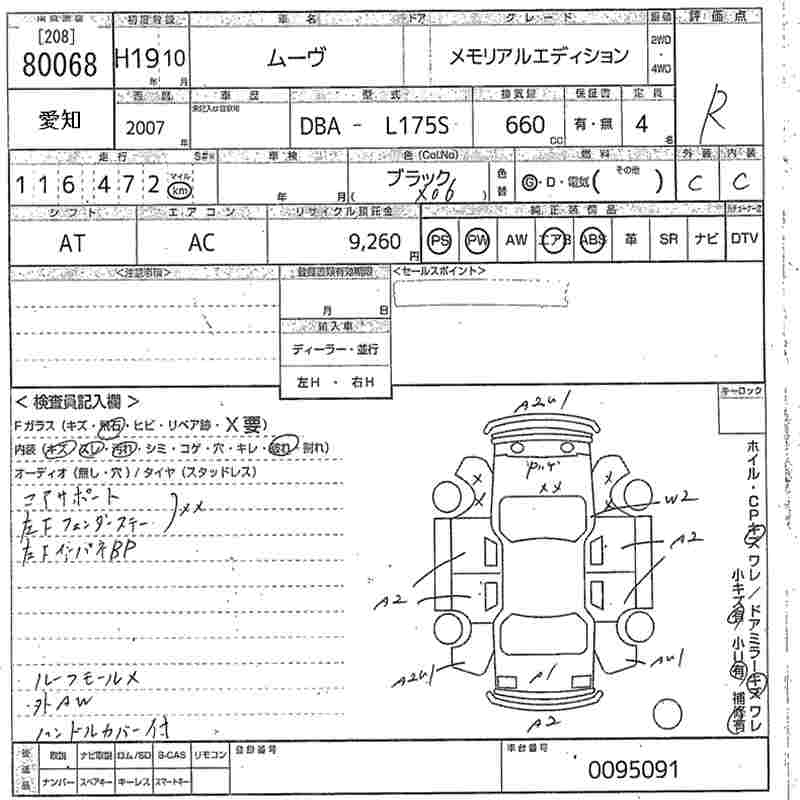 初度登録 車名 ドア グレード 装備 評価点
[208]
80068 H19年 10月 ムーヴ メモリアルエディション 2WD・4WD R
愛知 車歴 型式 排気量 保証書 定員
2007年 DBA - L175S 660cc 有・無 4名
走行 車検 色(Col.No) 色替 燃料 外装 内装
116472 マイル km 年 月 ブラック( X06 ) G・D・電気( その他 ) C C
シフト エアコン リサイクル預託金 純正装備品
AT AC 9,260円 PS PW AW エアB ABS 革 SR ナビ DTV
<注記事項> 登録書類有効期限 <セールスポイント>
月 日
輸入車
ディーラー・並行
左H・右H
<検査員記入欄> キーロック
Fガラス(キズ・飛石・ヒビ・リペア跡・X要)
内装(キズ・ヌレ・汚れ・シミ・コゲ・穴・キレ・破れ・割れ)
オーディオ(無し・穴)/タイヤ(スタッドレス)
コアサポート
左Fフェンダーステー XX
左FインパネBP
ルーフモールX
・外AW
ハンドルカバー付
A2U1
XX
X
X
X
X
W2
A2
A2
A2U1
A1
AU1
A2
ホイル・CPキズ ワレ/ドアミラーキズ ワレ
小キズ有 小U有 補修有
後送品 取説 ナビ取説 ロム/SD B-CAS リモコン 登録番号 車台番号
ナンバー スペアキー キーレス スマートキー 0095091